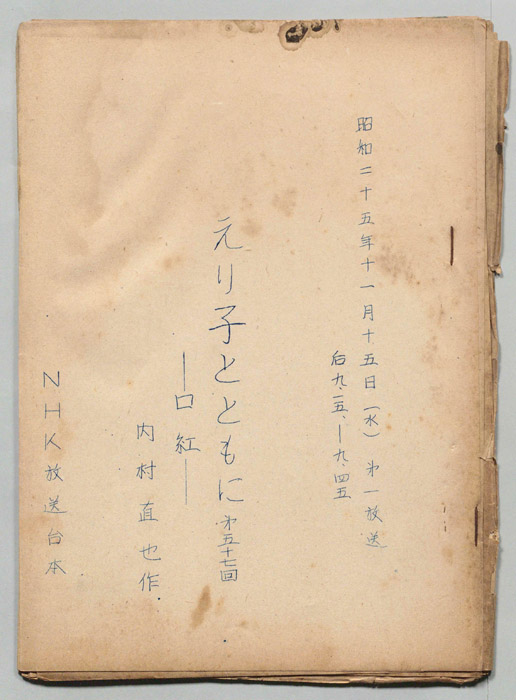 昭和二十五年十一月十五日(水)第一放送
后九.一五.ー九.四五
えり子とともに 第五十七回
―口紅―
内村直也作.
NHK放送台本